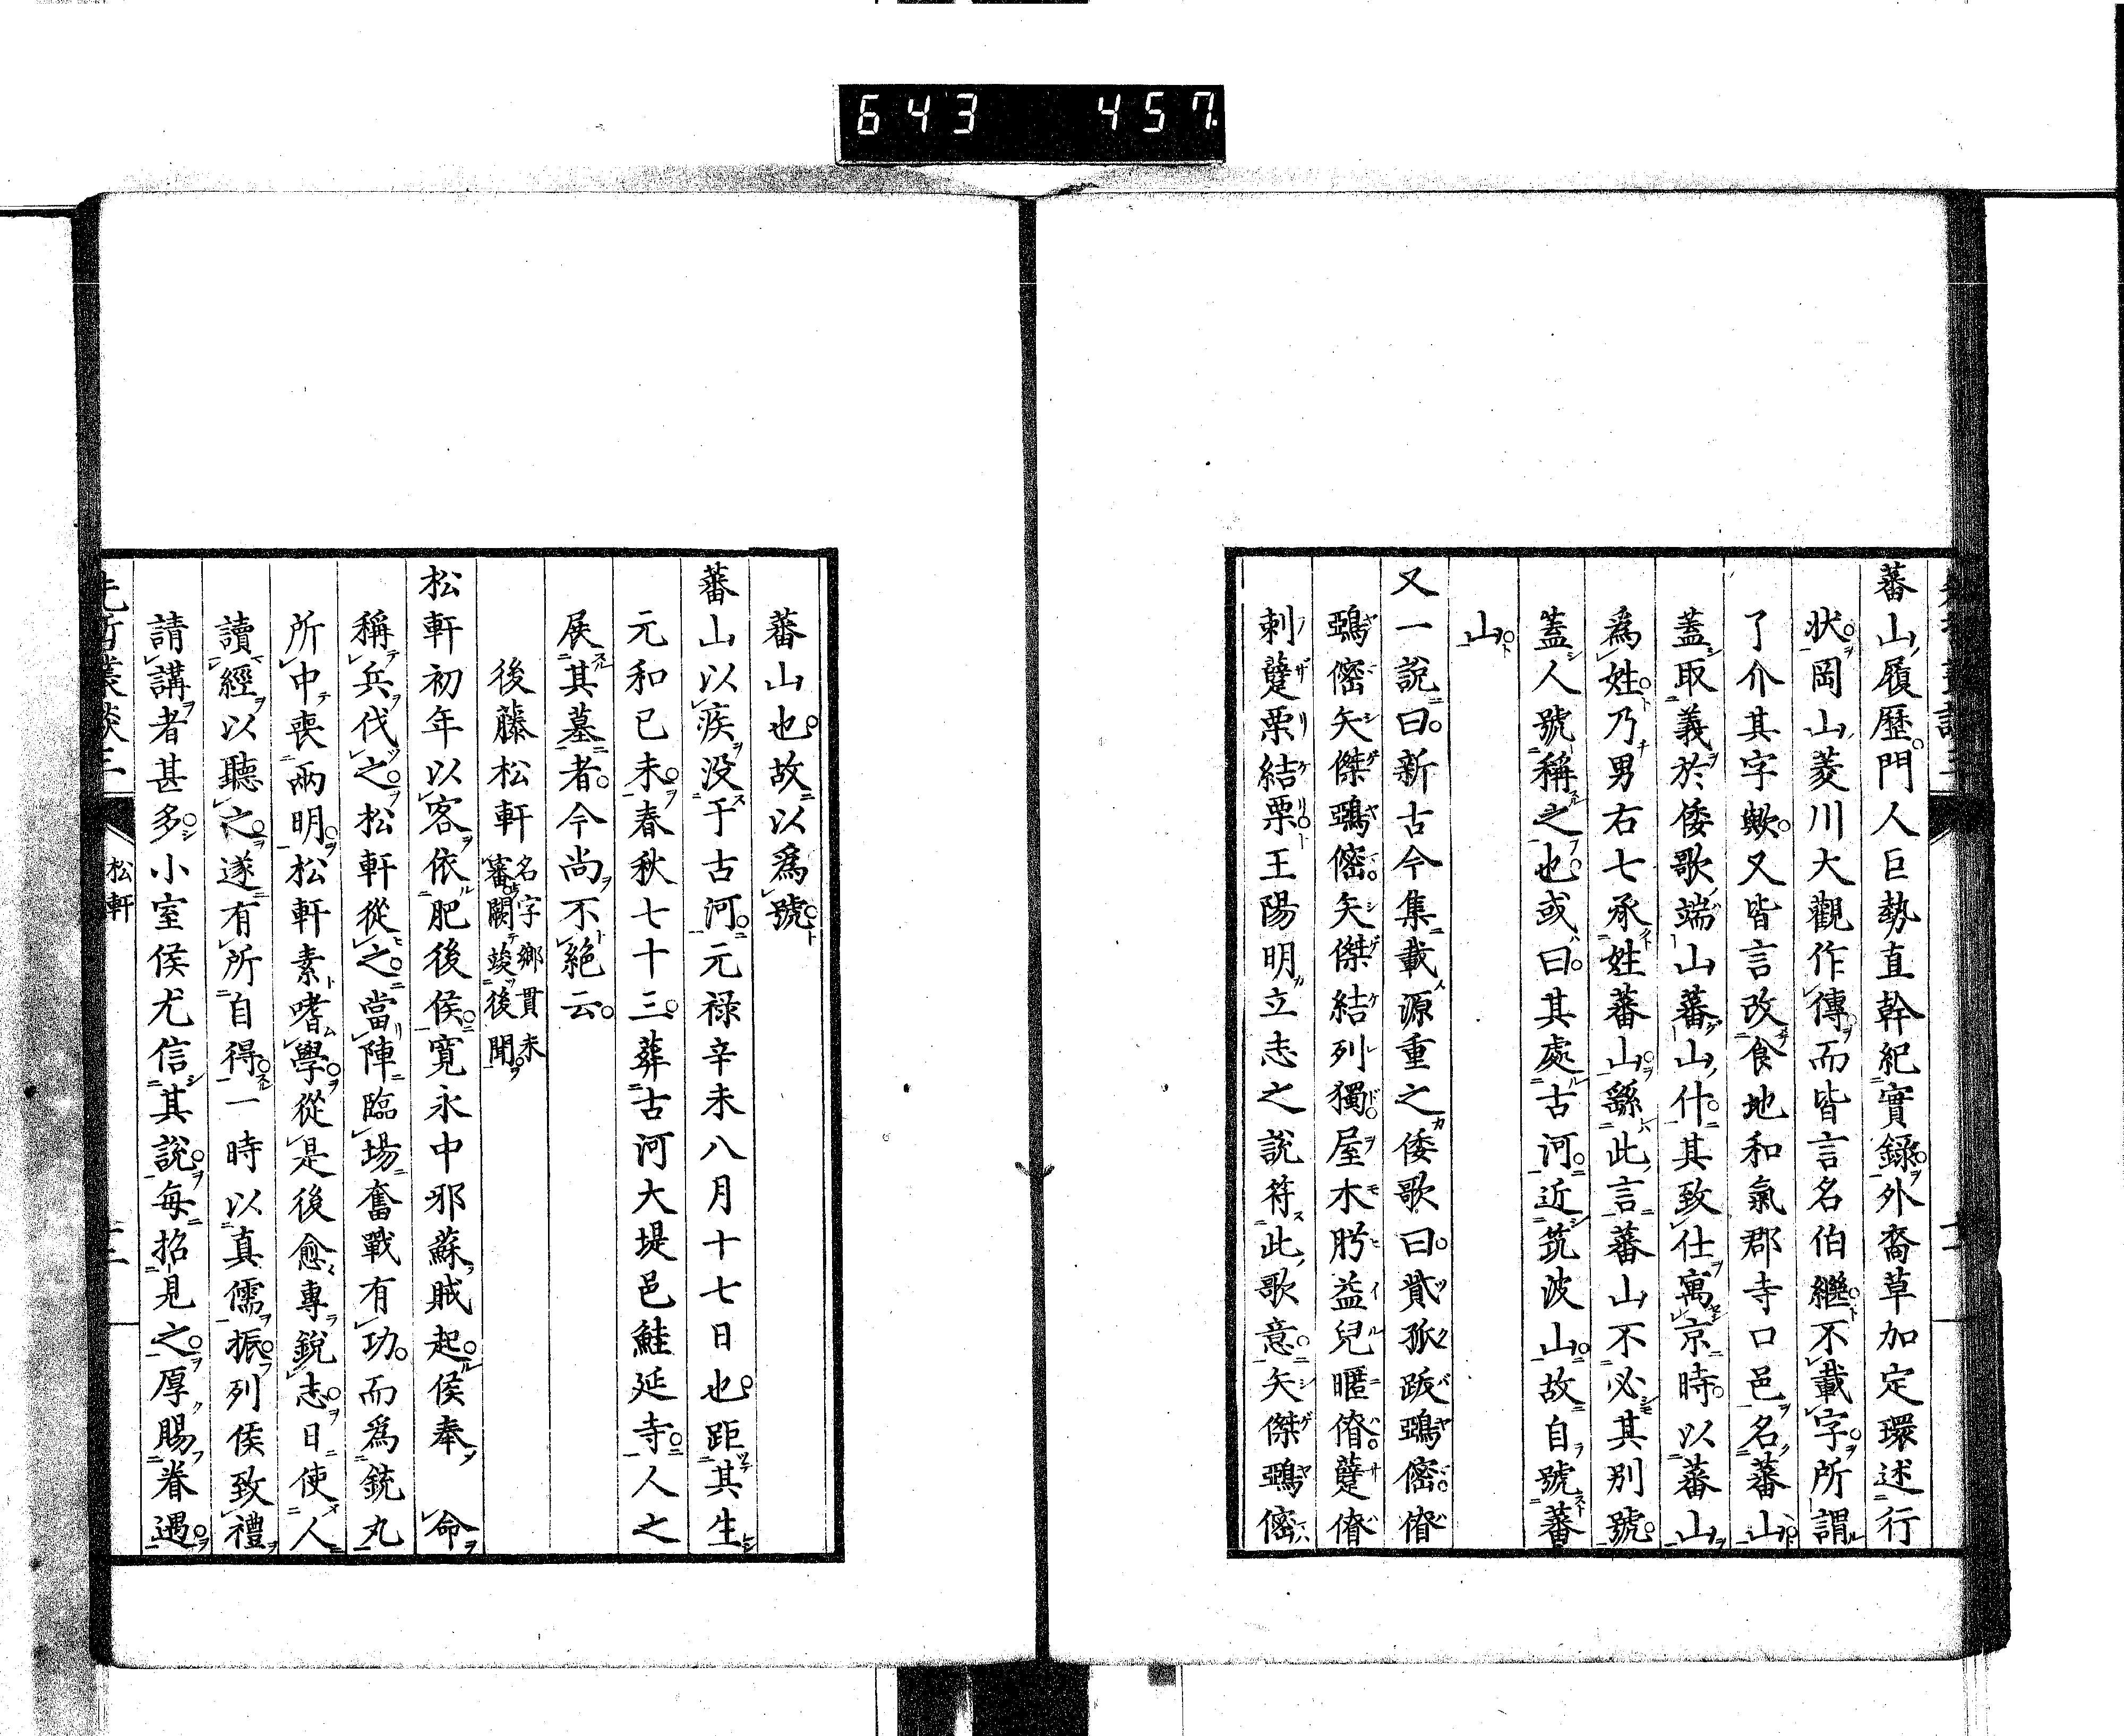 643 457
蕃山履歷門人巨勢直幹紀實錄外裔草加定環述行
狀岡山菱川大觀作傳而皆言名伯繼不載字所謂
了介其字歟又皆言改食地和氣郡寺口邑名蕃山
蓋取義於倭歌端山蕃山什其致仕寓京時以蕃山
爲姓乃男右七承姓蕃山繇此言蕃山不必其別號
蓋人號稱之也或曰其處古河近筑波山故自號蕃
山
又一說曰新古今集載源重之倭歌曰貲孤跋鵶窰偺
鵶窰矢傑鵶窰矢傑結列獨屋木肹益兒暱偺薩偺
刺薩栗結栗王陽明立志之說符此歌意矢傑鵶窰
蕃山也故以爲號
蕃山以疾没于古河元祿辛未八月十七日也距其生
元和己未春秋七十三葬古河大堤邑鮭延寺人之
展其墓者今尚不絕云
後藤松軒 名字鄉貫未
審闕竢後聞
松軒初年以客依肥後侯寬永中邪蘇賊起侯奉 命
稱兵伐之松軒從之當陣臨場奮戰有功而爲銃丸
所中喪兩明松軒素嗜學從是後愈專銳志日使人
讀經以聽之遂有所自得一時以真儒振列侯致禮
請講者甚多小室侯尤信其說每招見之厚賜眷遇
先哲叢談三 松軒